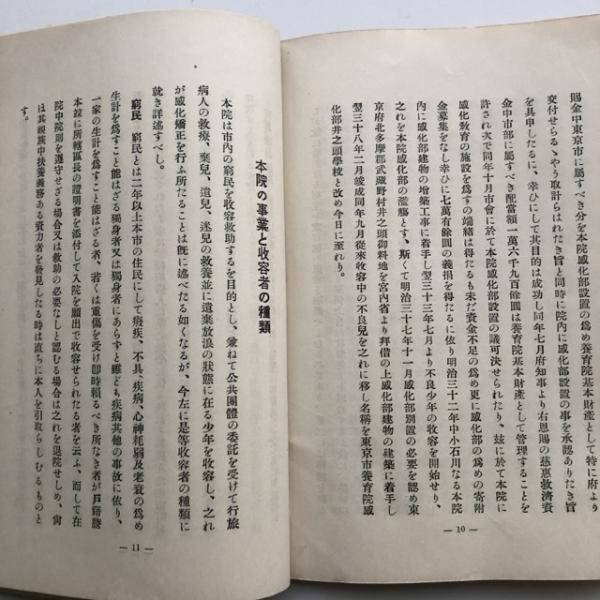 賜金中東京市に屬すべき分を本院感化部設置の爲め養育院基本財產として特に府より
交付せらるゝやう取計られたき旨と同時に院內に感化部設置の事を承認ありたき旨
を具申したるに、幸ひにして其目的は成功し同年七月府知事より右恩賜の慈惠救濟資
金中市部に屬すべき配當額一萬六千九百餘圓は養育院基本財產として管理することを
許され次で同年十月市會に於て本院感化部設置の議可決せられたり、玆に於て本院に
感化敎育の施設を爲すの端緖は得たるも未だ資金不足の爲め更に感化部の爲めの寄附
金募集をなし幸ひに七萬有餘圓の義捐を得たるに依り明治三十二年中小石川なる本院
內に感化部建物の增築工事に着手し翌三十三年七月より不良少年の收容を開始せり、
之れを本院感化部の濫觴とす、斯くて明治三十七年十一月感化部別置の必要を認め東
京府北多摩郡武藏野村井之頭御料地を宮內省より拜借の上感化部建物の建築に着手し
翌三十八年二月竣成同年九月從來收容中の不良兒を之れに移し名稱を東京市養育院感
化部井之頭學校と改め今日に至れり。
— 10 —
本院の事業と收容者の種類
本院は市內の窮民を收容救助するを目的とし、兼ねて公共團體の委託を受けて行旅
病人の救療、棄兒、遺兒、迷兒の敎養並に遺棄放浪の狀態に在る少年を收容し、之れ
が感化矯正を行ふ所たることは旣に述べたる如くなるが、今左に是等收容者の種類に
就き詳述すべし。
窮民 窮民とは二年以上本市の住民にして癈疾、不具、疾病、心神耗弱及老衰の爲め
生計を爲すこと能はざる獨身者又は獨身者にあらずと雖ども疾病其他の事故に依り、
一家の生計を爲すこと能はざる者、若くは重傷を受け卽時賴るべき所なき者が戶籍謄
本並に所轄區長の證明書を添付して入院を願出で收容せられたる者を云ふ、而して在
院中院則を遵守せざる場合又は救助の必要なしと認むる場合は之れを退院せしめ、尙
ほ其親族中扶養義務ある資力者を發見したる時は直ちに本人を引取らしむるものと
す。
— 11 —